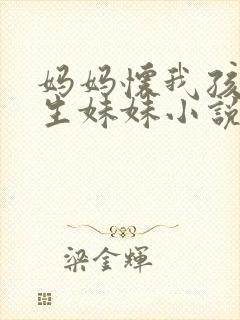 妈妈怀我孩
生妹妹小說
梁金輝